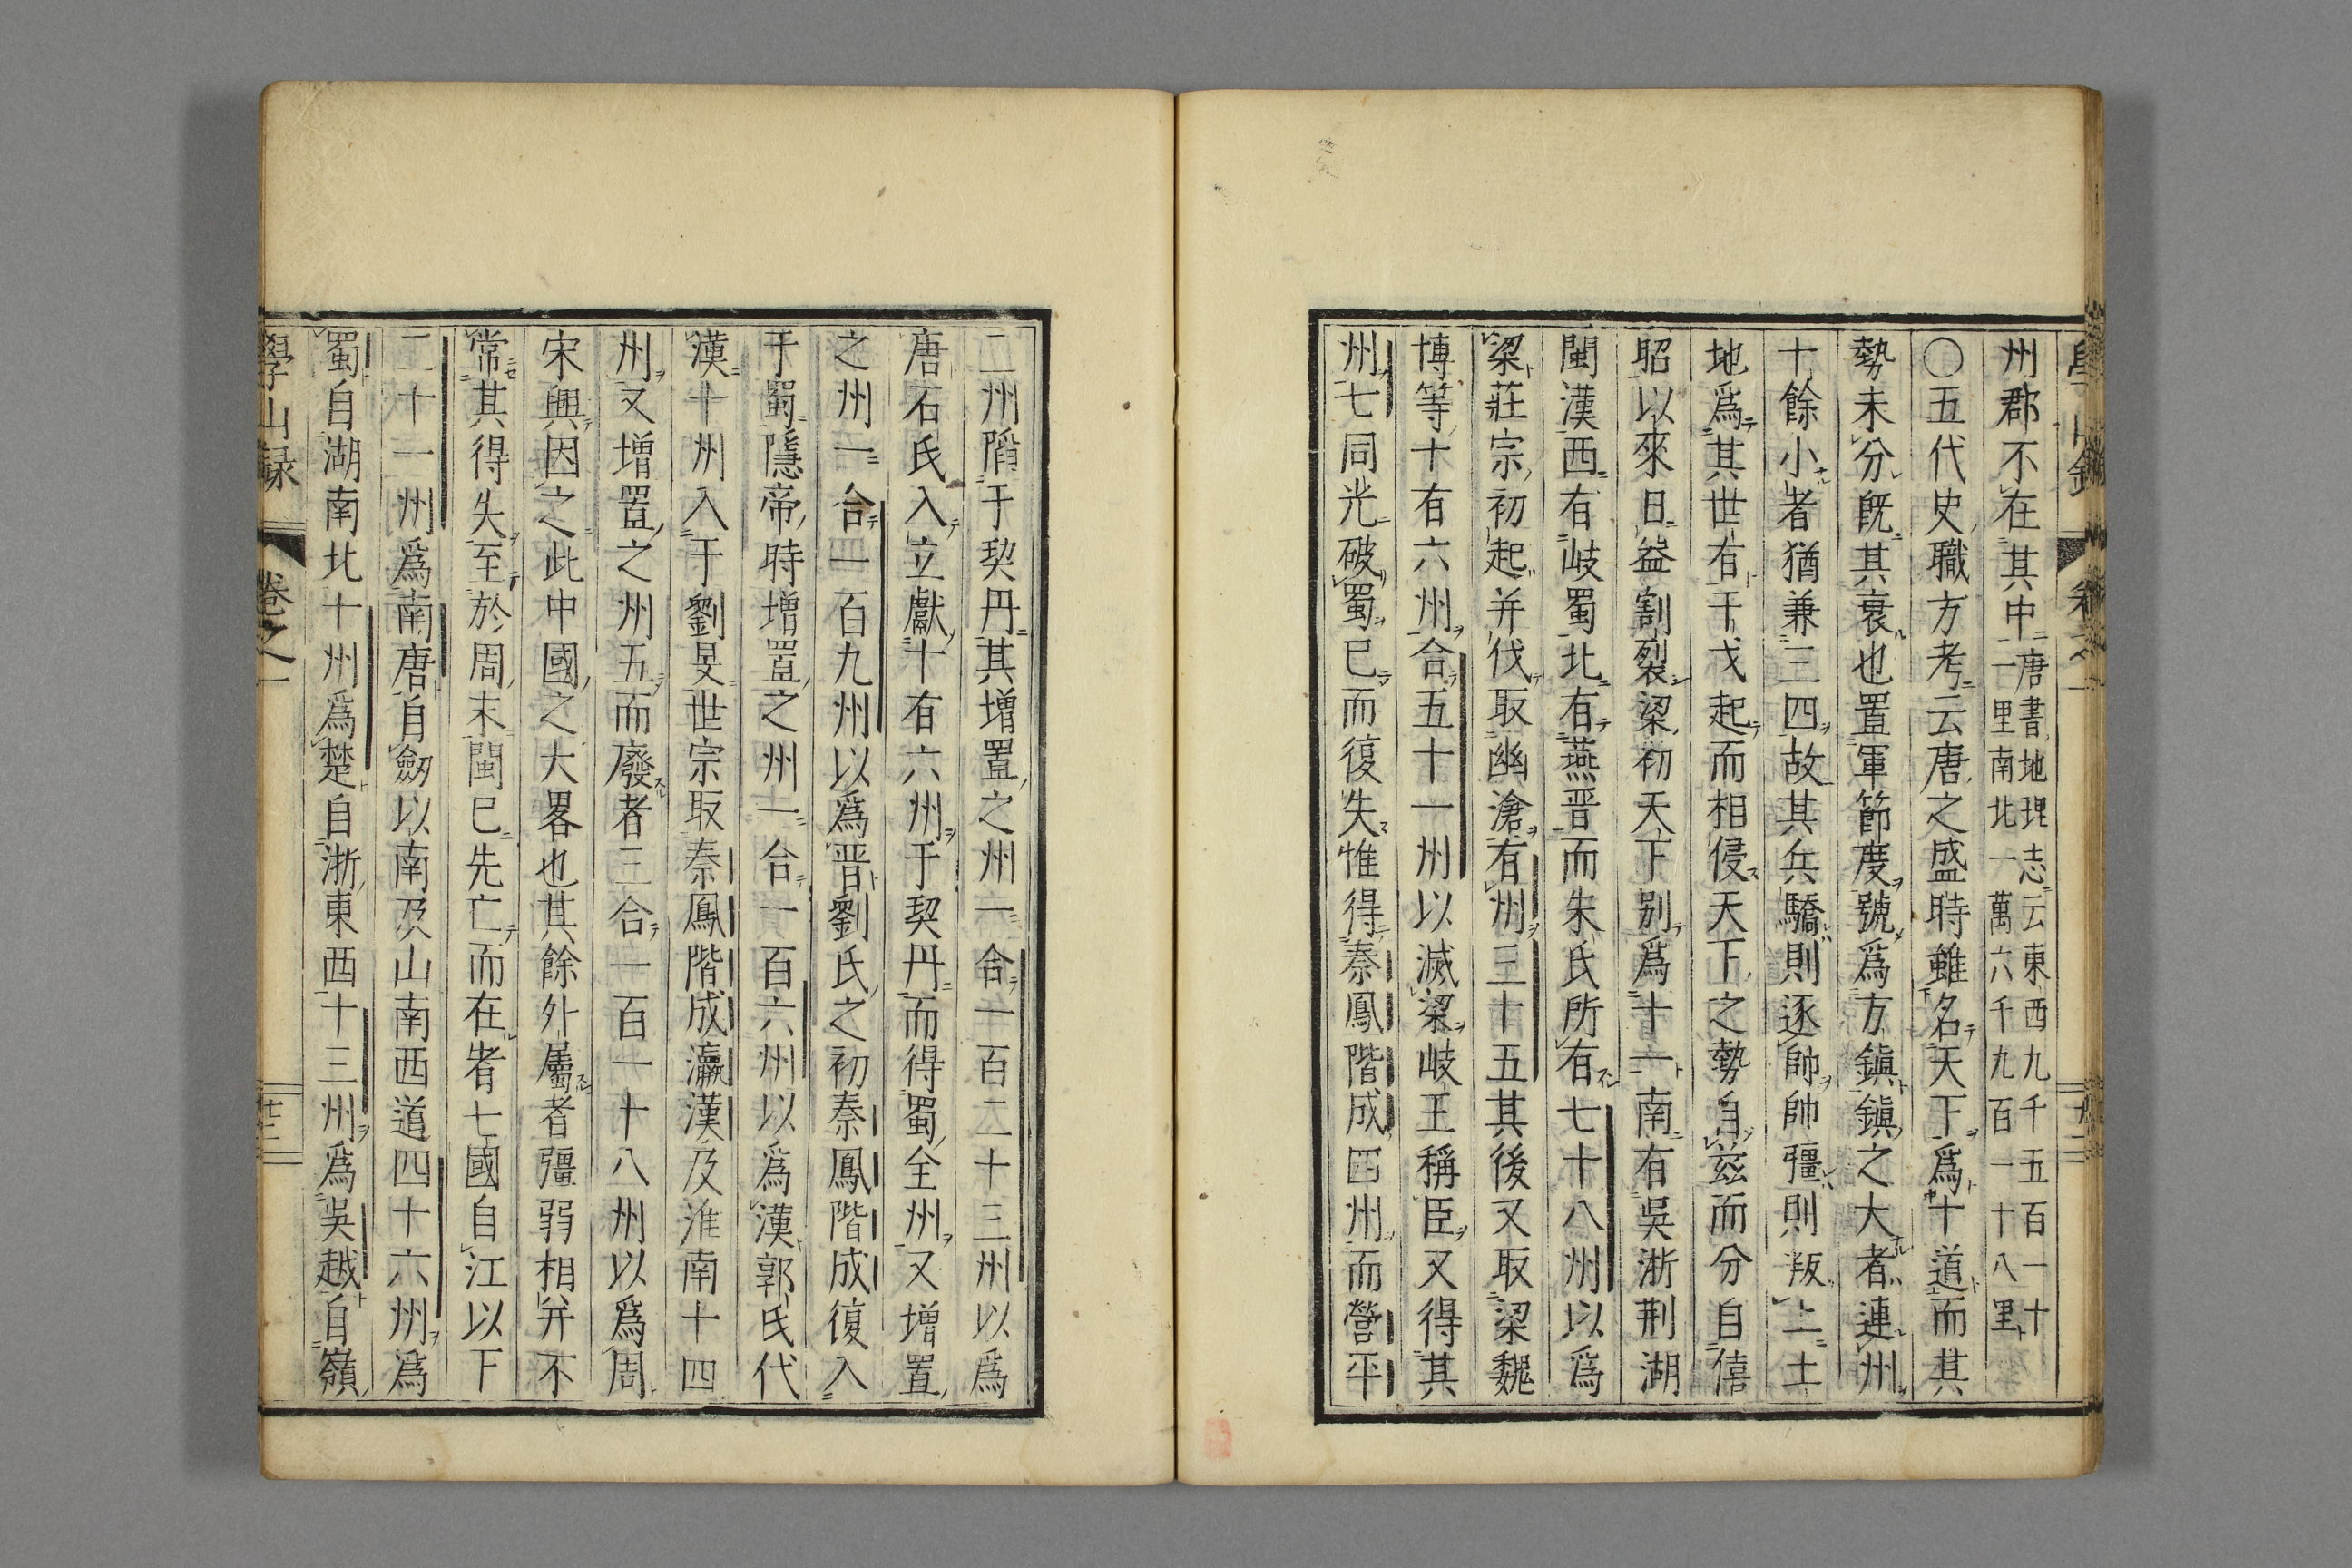 州郡不在其中唐書地理志云東西九千五百一十
一里南北一萬六千九百一十八里
○五代史職方考云唐之盛時雖名天下爲十道而其
勢未分旣其衰也置軍節度號爲方鎮鎮之大者連州
十餘小者猶兼三四故其兵驕則逐帥帥彊則叛上土
地爲其世有干戈起而相侵天下之勢自兹而分自僖
昭以來日益割裂梁初天下別爲十一南有吳浙荆湖
閩漢西有岐蜀北有燕晋而朱氏所有七十八州以爲
梁莊宗初起并伐取幽滄有州三十五其後又取梁魏
博等十有六州合五十一州以滅梁岐王稱臣又得其
州七同光破蜀已而復失惟得秦鳳階成四州而營平
二州䧟于契丹其增置之州一合一百二十三州以爲
唐石氏入立獻十有六州于契丹而得蜀全州又增置
之州一合一百九州以爲晋劉氏之初秦鳳階成復入
于蜀隱帝時增置之州一合一百六州以爲漢郭氏代
漢十州入于劉旻世宗取秦鳳階成瀛漢及淮南十四
州又增置之州五而廢者三合一百一十八州以爲周
宋興因之此中國之大畧也其餘外屬者彊弱相并不
常其得失至於周末閩已先亡而在者七國自江以下
二十一州爲南唐自劔以南及山南西道四十六州爲
蜀自湖南北十州爲楚自浙東西十三州爲吳越自嶺
學山録 卷之一